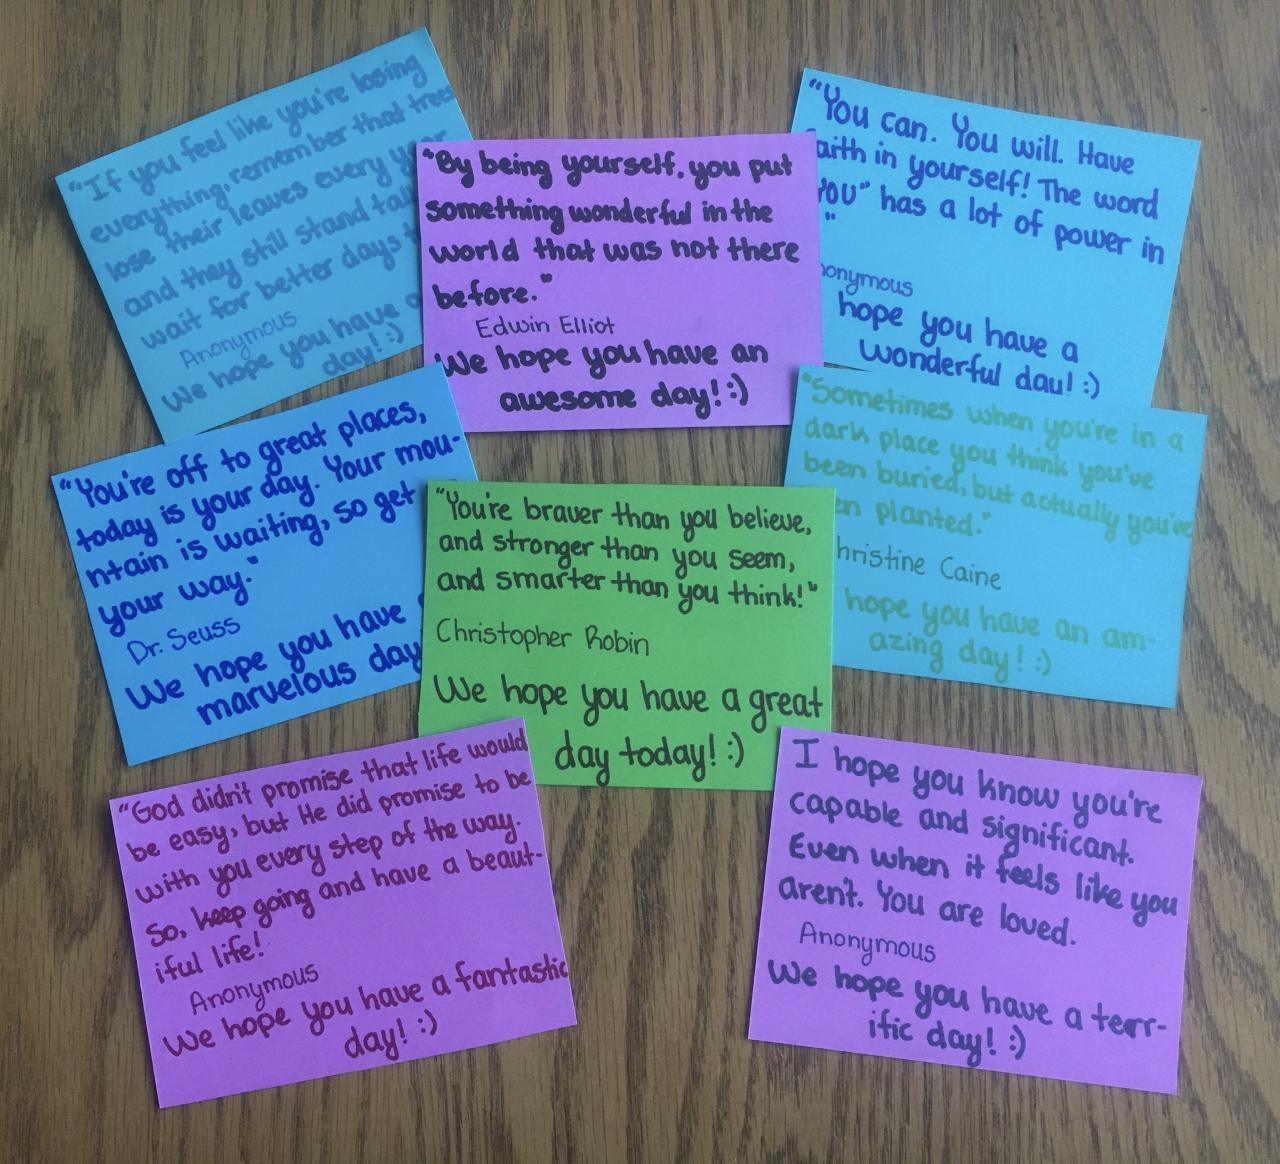 "If you feel like you're losing
everything, remember that trees
lose their leaves every year
and they still stand tall
wait for better days
Anonymous
We hope you have
day! :)
"By being yourself, you put
something wonderful in the
world that was not there
before."
Edwin Elliot
We hope you have an
awesome day! :)
"You can. You will. Have
faith in yourself! The word
YOU" has a lot of power in
"
Anonymous
hope you have a
wonderful day! :)
"You're off to great places,
today is your day. Your mou-
ntain is waiting, so get
your way."
Dr. Seuss
We hope you have
marvelous day
"You're braver than you believe,
and stronger than you seem,
and smarter than you think!"
Christopher Robin
We hope you have a great
day today! :)
"Sometimes when you're in a
dark place you think you've
been buried, but actually you've
been planted."
Christine Caine
hope you have an am-
azing day! :)
"God didn't promise that life would
be easy, but He did promise to be
with you every step of the way.
So, keep going and have a beaut-
iful life!
Anonymous
We hope you have a fantastic
day! :)
I hope you know you're
capable and significant.
Even when it feels like you
aren't. You are loved.
Anonymous
We hope you have a terr-
ific day! :)